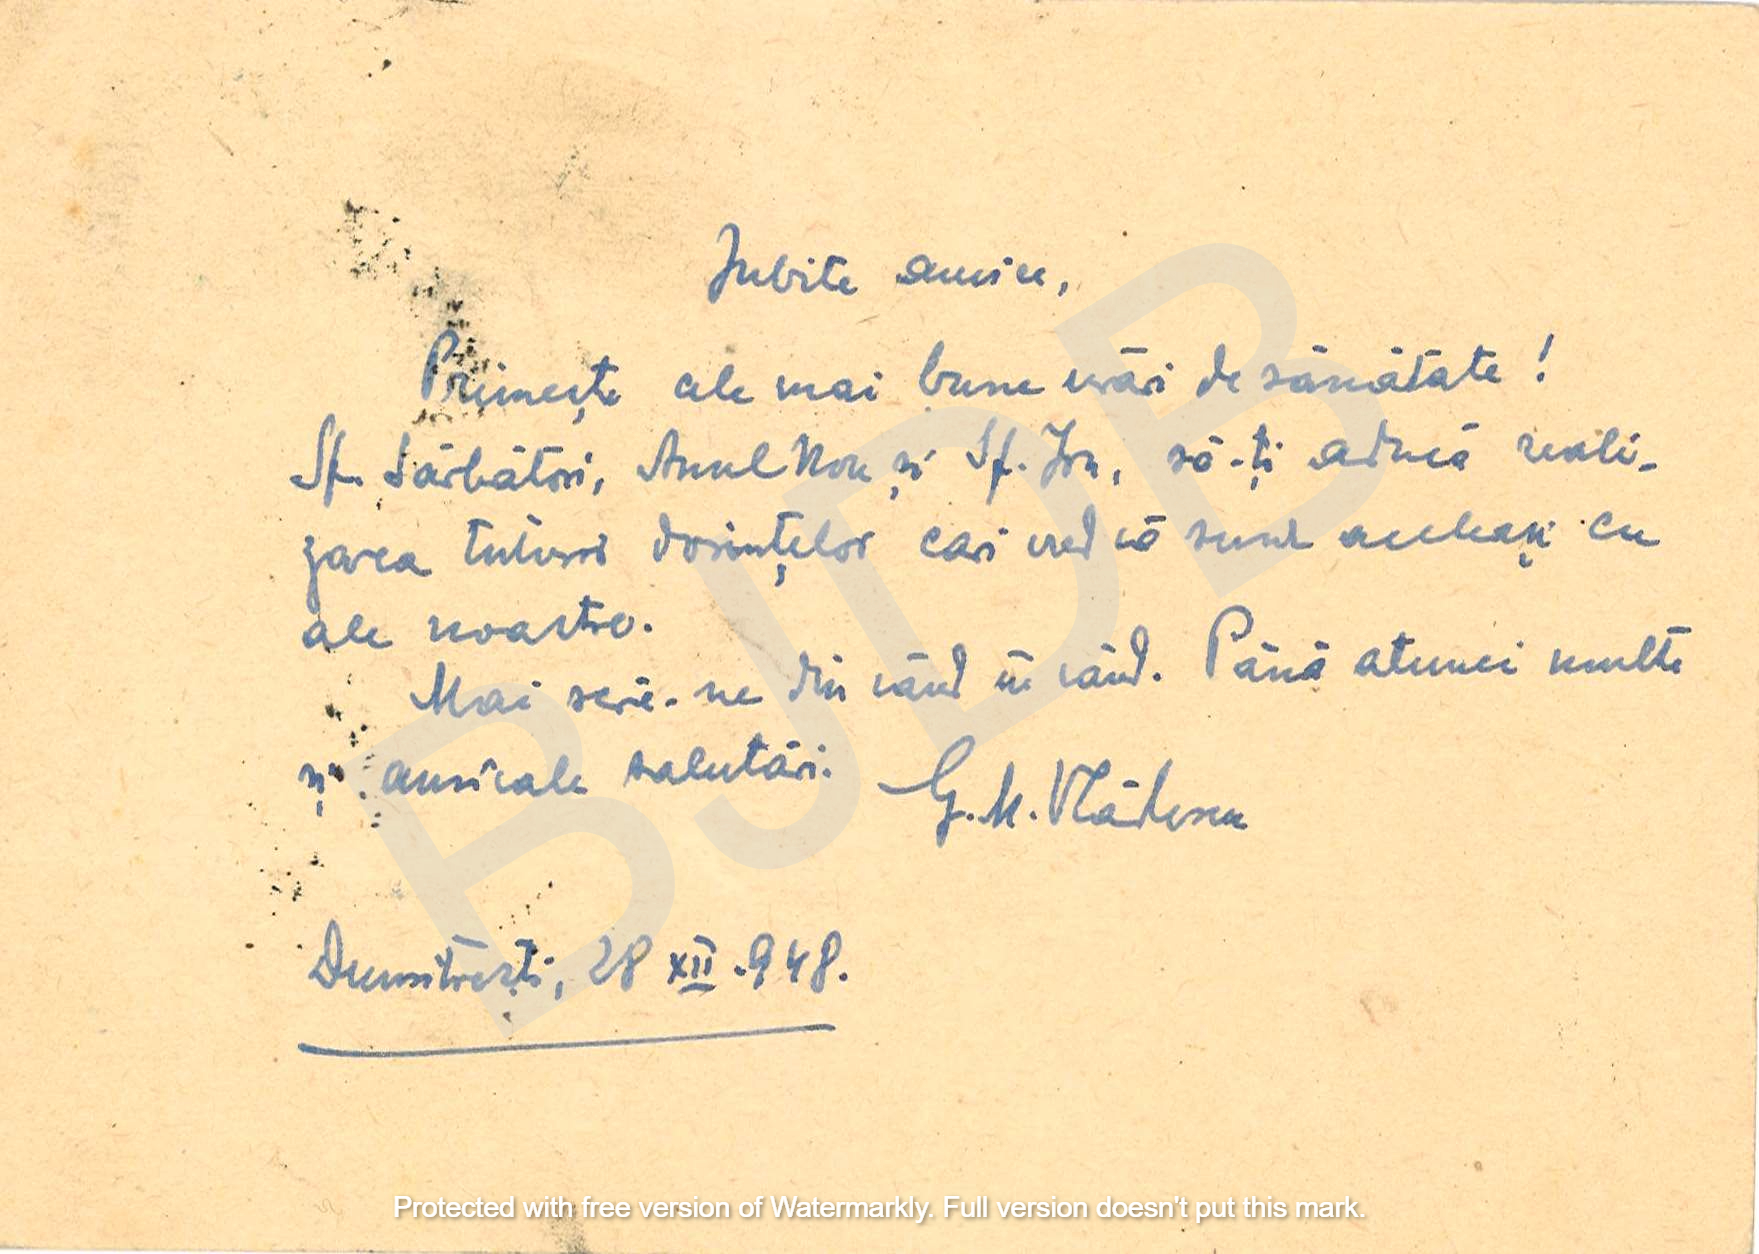 Iubite amice,
Primește cele mai bune urări de sănătate!
Sf. Sărbători, Anul Nou și Sf. Ion, să-ți aducă reali-
zarea tuturor dorințelor cari cred că sunt aceleași cu
ale noastre.
Mai scrie-ne din când în când. Până atunci multe
și amicale salutări.
G. M. Vlădescu
Dumitrești, 28 XII.948.
BJDB
Protected with free version of Watermarkly. Full version doesn't put this mark.